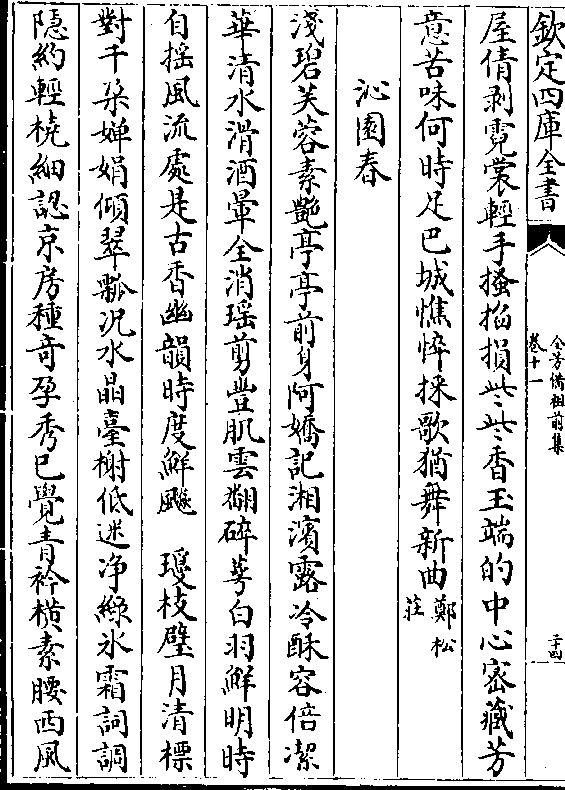 欽定四庫全書
全芳備祖前集
卷十一
二十四
屋倩剥霓裳輕手搔掐損些些香玉端的中心密藏芳
意苦味何時足巴城憔悴採歌猶舞新曲鄭松
莊
沁園春
淺碧芙蓉素艷亭亭前身阿嬌記湘濱露冷酥容倍潔
華清水滑酒暈全消瑶剪豐肌雲翻碎萼白羽鮮明時
自揺風流處是古香幽韻時度鮮飈 瓊枝璧月清標
對千朶嬋娟傾翠瓢况水晶臺榭低迷净緑氷霜詞調
隠約輕橈細認京房種竒孕秀已覺青衿横素腰西風